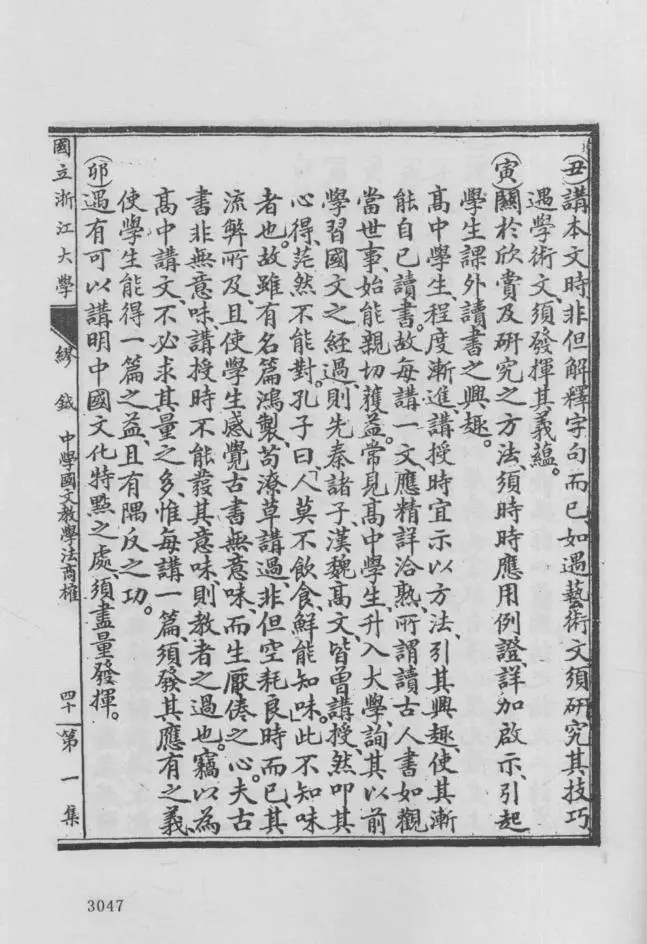 (丑)講本文時非但解釋字句而已如遇藝術文須研究其技巧
遇學術文、須發揮其義蘊。
(寅)關於欣賞及研究之方法、須時時應用例證、詳加啟示、引起
學生課外讀書之興趣。
高中學生、程度漸進、講授時宜示以方法、引其興趣、使其漸
能自己讀書。故每講一文、應精詳洽熟、所謂讀古人書、如觀
當世事、始能親切獲益。常見高中學生、升入大學、詢其以前
學習國文之經過、則先秦諸子漢魏高文、皆曾講授、然叩其
心得、茫然不能對。孔子曰、「人莫不飲食、鮮能知味。」此不知味
者也。故雖有名篇鴻製、苟潦草講過、非但空耗良時而已、其
流弊所及、且使學生感覺古書無意味、而生厭倦之心。夫古
書非無意味、講授時不能發其意味、則教者之過也。竊以為
高中講文、不必求其量之多、惟每講一篇、須發其應有之義、
使學生能得一篇之益、且有隅反之功。
(卯)遇有可以講明中國文化特點之處、須盡量發揮。
國立浙江大學 繆鉞 中學國文教學法商榷 四十 第一集
3047